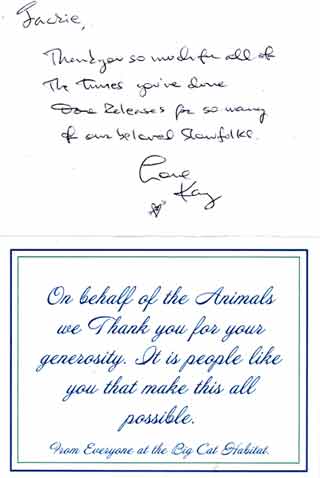 Jackie,
Thank you so much for all of
the times you've done
Releases for so many
of our beloved Showfolks.
Love
Kay
On behalf of the Animals
we Thank you for your
generosity. It is people like
you that make this all
possible.
From Everyone at the Big Cat Habitat.